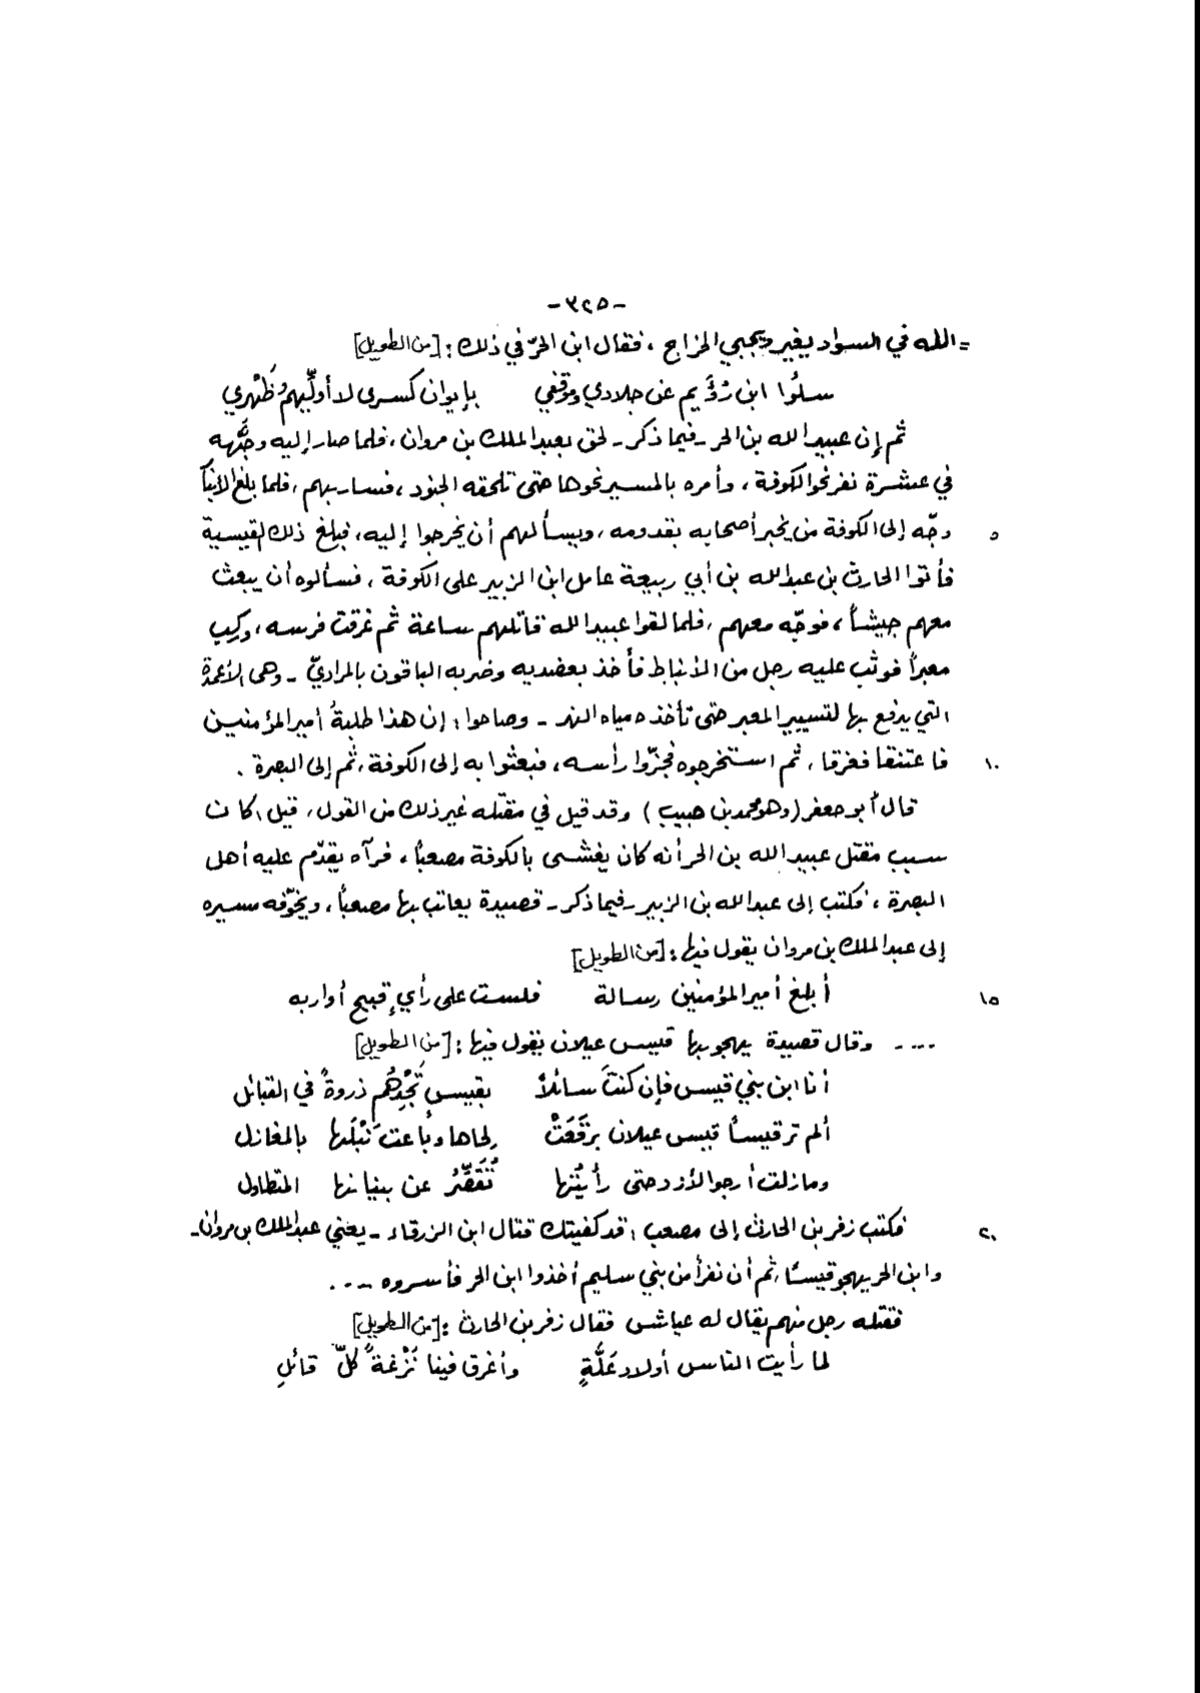 -٣٢٥-
= الله في السواد يغير ويجبي الخراج ، فقال ابن الحرّ في ذلك : [من الطويل]
سلُوا ابن رُؤَيم عن جلادي وموقفي بإيوان كسرى لا أولّيهم وَظَهْري
ثم إن عبيد الله بن الحر - فيما ذكر - لحق بعبد الملك بن مروان ، فلما صار إليه وجَّهه
في عشرة نفر نحو الكوفة ، وأمره بالمسير نحوها حتى تلحقه الجنود ، فسار بهم ، فلما بلغ الأنبار
٥ وجّه إلى الكوفة من يخبر أصحابه بقدومه ، ويسألهم أن يخرجوا إليه ، فبلغ ذلك القيسية
فأتوا الحارث بن عبد الله بن أبي ربيعة عامل ابن الزبير على الكوفة ، فسألوه أن يبعث
معهم جيشاً ، فوجّه معهم ، فلما لقوا عبيد الله قاتلهم ساعة ثم غرقت فرسه ، وركب
معبراً فوثب عليه رجل من الأنباط فأخذ بعضديه وضربه الباقون بالمراديّ - وهي الأعمدة
التي يدفع بها لتسيير المعبر حتى تأخذه مياه النهر - وصاحوا : إن هذا طلبةُ أمير المؤمنين
١٠ فاعتنقا فغرقا ، ثم استخرجوه فجزّوا رأسه ، فبعثوا به إلى الكوفة ، ثم إلى البصرة .
قال أبو جعفر (وهو محمد بن حبيب) وقد قيل في مقتله غير ذلك من القول ، قيل : كان
سبب مقتل عبيد الله بن الحر أنه كان يغشى بالكوفة مصعباً ، فرآه يقدّم عليه أهل
البصرة ، فكتب إلى عبد الله بن الزبير - فيما ذكر - قصيدة يعاتب بها مصعباً ، ويخوّفه مسيره
إلى عبد الملك بن مروان يقول فيها : [من الطويل]
١٥ أبلغ أمير المؤمنين رسالة فلست على رأيٍ قبيح أواربه
.... وقال قصيدة يهجو بها قيس عيلان يقول فيها : [من الطويل]
أنا ابن بني قيس فإن كنتَ سائلاً بقيسٍ تَجْدِهُم ذروةً في القبائل
ألم تر قيساً قيس عيلان برقَعَتْ لحاها وباعت نَبْلَها بالمغازل
وما زلت أرجو الأزد حتى رأيتُها تُقَصِّرُ عن بنيانها المتطاول
٢٠ فكتب زفر بن الحارث إلى مصعب : قد كفيتك قتال ابن الزرقاء - يعني عبد الملك بن مروان -
وابن الحر يهجو قيساً ، ثم أن نفراً من بني سليم أخذوا ابن الحر فأسروه ....
فقتله رجل منهم يقال له عياش فقال زفر بن الحارث : [من الطويل]
لما رأيت الناس أولاد عَلَّةٍ وأغرق فينا نَزْغةً كلّ قائلِ